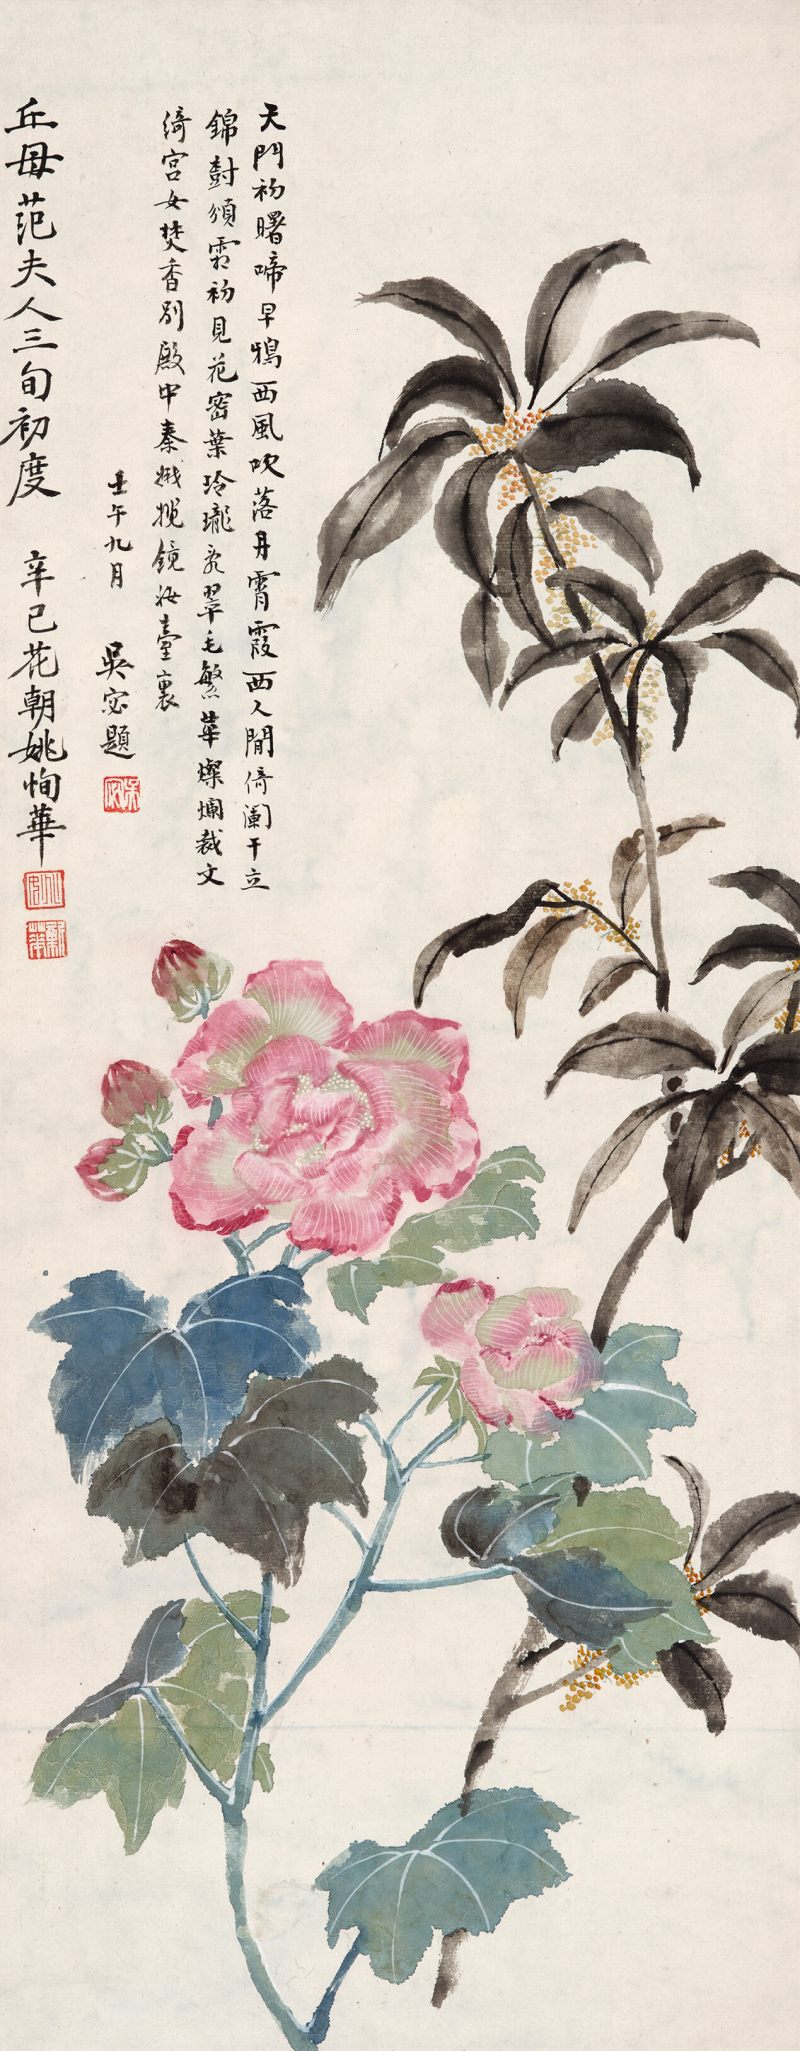 天門初曙啼早鴉西風吹落丹霄霞西人閒倚闌干立
錦尌霜初見花密葉玲瓏翠毛繁華燦爛裁文
綺宮女焚香別殿中秦娥攬鏡妝臺裏
壬午九月 吳宓題
吳宓
丘母范夫人三旬初度 辛巳花朝姚恂華